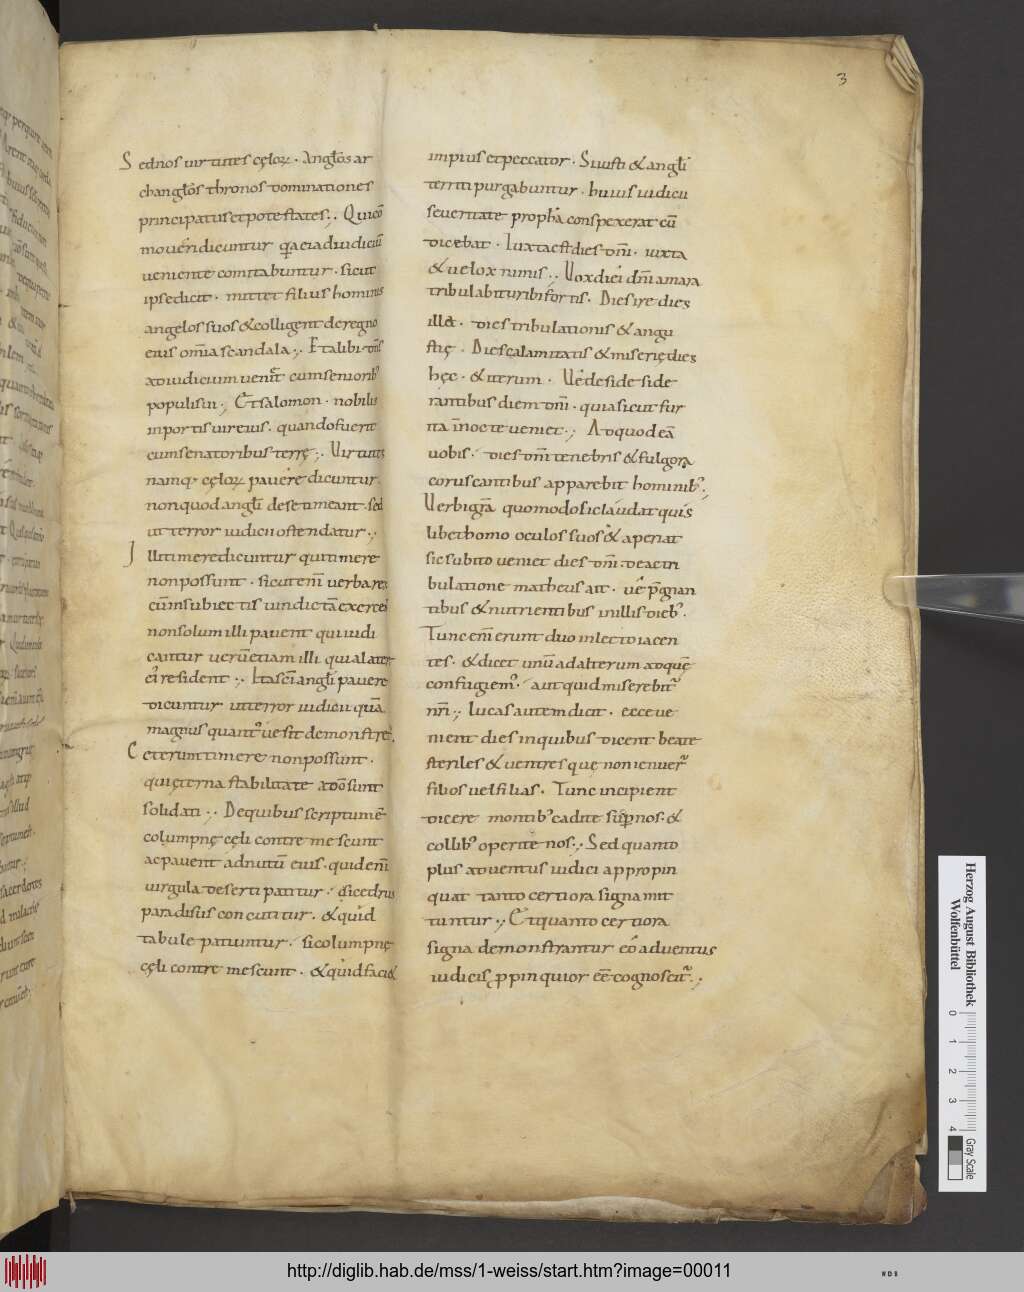 3
Sed nos uirtutes cęloꝝ. Anglos ar
changlos thronos dominationes
principatus et potestates. Qui cō
moueri dicuntur q̨a ei ad iudiciū
ueniente comitabuntur. sicut
ipse dicit. mittet filius hominis
angelos suos & colligent de regno
eius om̄ia scandala. Et alibi. dn̄s
ad iudicium ueniet cum seniorib;
populi sui. Et salomon. nobilis
in portis uir eius. quando fuerit
cum senatoribus terrę. Uirtutes
namq; cęloꝝ pauere dicuntur.
non quod angl̄i de se timeant. sed
ut terror iudicii ostendatur.
Illi timere dicuntur qui timere
non possunt. sicut eni͞m uerba rex
cum subiectis uindictā exercet
non solum illi pauent qui iudi
cantur uerū etiam illi qui a latere
ei resident. Ita sc̄i angl̄i pauere
dicuntur ut terror iudicii quā
magnus quantus ue sit demonstret.
Ceterum timere non possunt.
qui ęterna stabilitate a dō sunt
solidati. De quibus scriptum ē
columpnę cęli contremescunt
ac pauent ad nutū eius. quid eni͞m
uirgula deserti patitur. si cedrus
paradisus concutitur. & quid
tabule patiuntur. si columpnę
cęli contremescunt. & quid faci&
impius et peccator. Si iusti & angl̄i
territi purgabuntur. huius iudicii
seueritate proph̄a conspexerat cū
dicebat. Iuxta est dies dn̄i. iuxta
& uelox nimis. Uox diei dn̄i amara
tribulabitur ibi fortis. Dies ire dies
illa. dies tribulationis & angu
stię. Dies calamitatis & miserię dies
hęc. & iterum. Ue deside side
rantibus diem dn̄i. quia sicut fur
ita in nocte ueniet. Ad quod eā
uobis. dies dn̄i tenebris & fulgora
coruscantibus apparebit hominib;.
Uerbi gr̄a quomodo si claudat quis
libet homo oculos suos & aperiat
sic subito ueniet dies dn̄i. de ac tri
bulatione matheus ait. ue p̄gnan
tibus & nutrientibus in illis dieb;.
Tunc eni͞m erunt duo in lecto iacen
tes. & dicet unū ad alterum ad quē
confugiem;. aut quid miserebitur
nr̄i. Lucas autem dicit. ecce ue
nient dies in quibus dicent beate
steriles & uentres quę non ienuer̄
filios uel filias. Tunc incipient
dicere montib; cadite sup̄ nos. &
collib; operite nos. Sed quanto
plus aduentus iudici appropin
quat tanto certiora signa mit
tuntur. Et quanto certiora
signa demonstrantur eo aduentus
iudicis ꝓpinquior eē cognoscitur.
Herzog August Bibliothek
Wolfenbüttel
0 1 2 3 4
Gray Scale
http://diglib.hab.de/mss/1-weiss/start.htm?image=00011